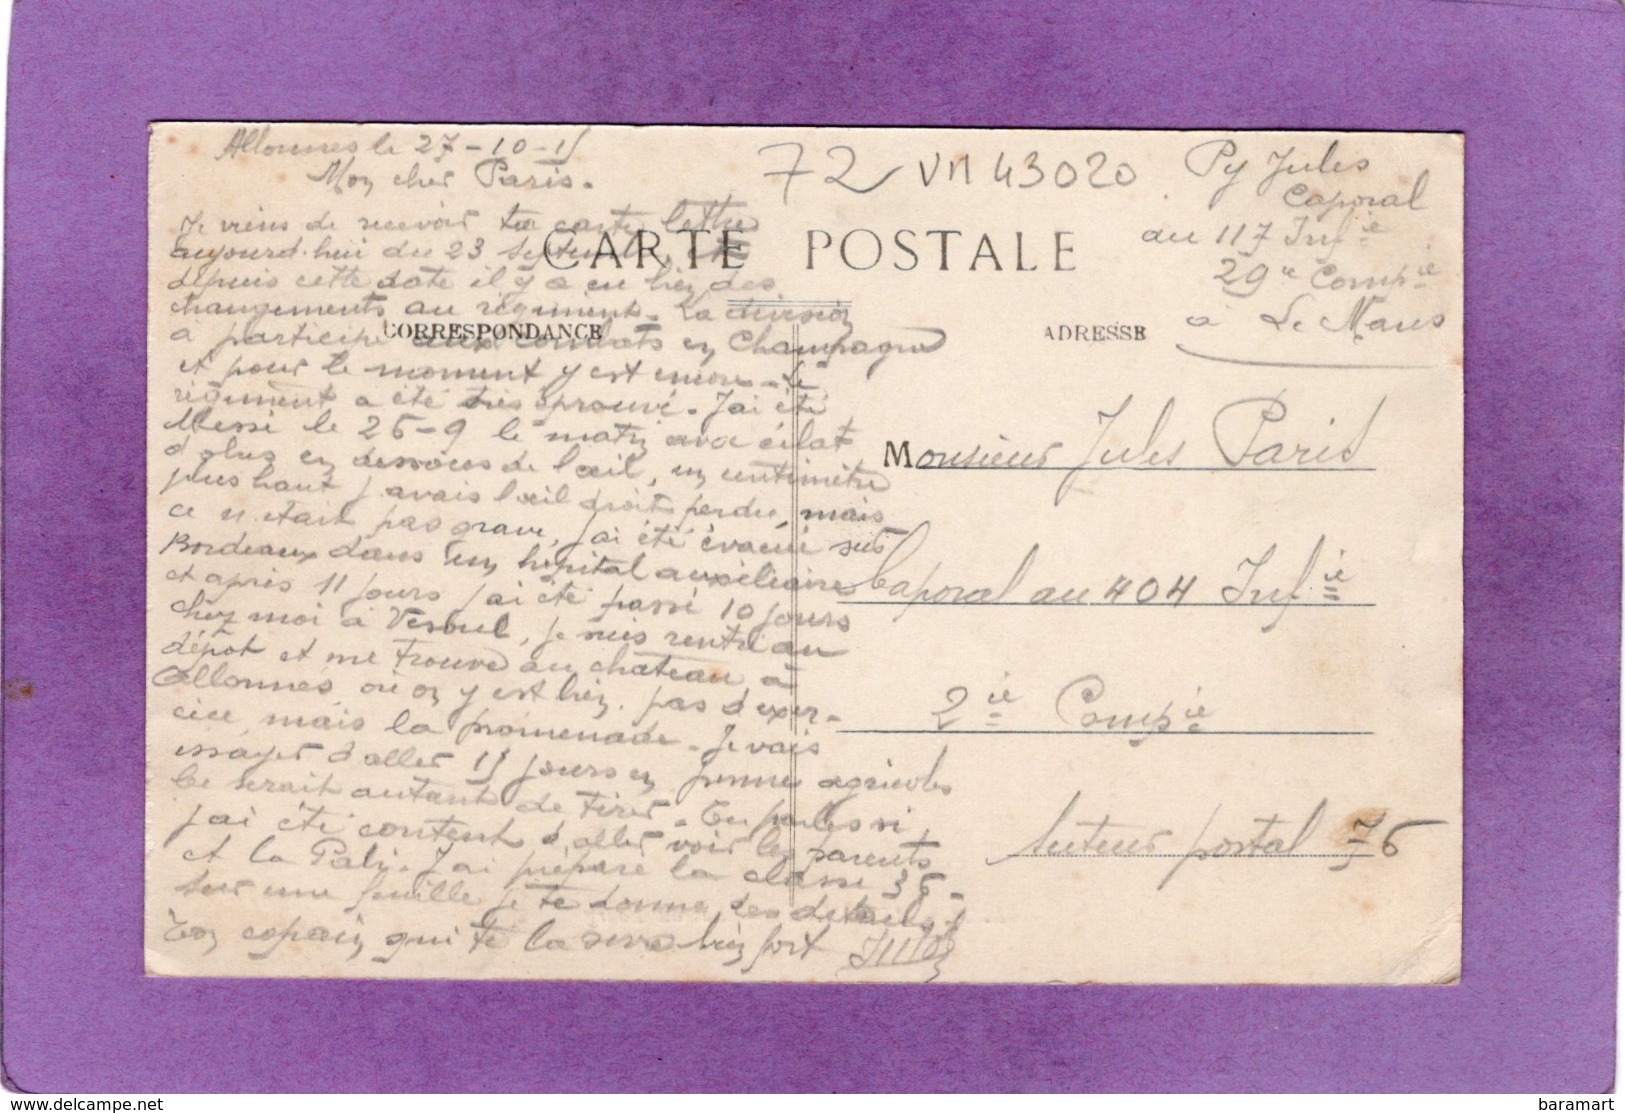 Allonnes le 27-10-15
Mon cher Paris.
Je viens de recevoir ta carte lettre
aujourd'hui du 23 Septembre
depuis cette date il y a eu bien des
changements au régiment. La division
à participé aux combats en Champagne
et pour le moment y est encore. Le
régiment a été très éprouvé. J'ai été
blessé le 25-9 le matin avec éclat
d'obus en dessous de l'œil, un centimètre
plus haut j'avais l'œil droit perdu, mais
ce n'était pas grave, j'ai été évacué sur
Bordeaux dans un hôpital auxiliaire
et après 11 jours j'ai été passé 10 jours
chez moi à Vesoul, je suis rentré au
dépôt et me trouve au château à
Allonnes où on y est bien. pas d'exer-
cice mais la promenade. Je vais
essayer d'aller 15 jours en perme agricoles
Ce serait autant de tirer. Tu parles si
j'ai été content d'aller voir les parents
et la J'ai préparé la classe 36-
sur une feuille je te donne des détails
Ton copain qui te la serre bien fort Jules
72 VM 43020
CARTE POSTALE
CORRESPONDANCE
ADRESSE
Py Jules
Caporal
au 117 Inf ie
29 e Comp ie
à Le Mans
Monsieur Jules Paris
Caporal au 404 Inf ie
2 ie Comp ie
Secteur postal 76
delcampe.net
baramart